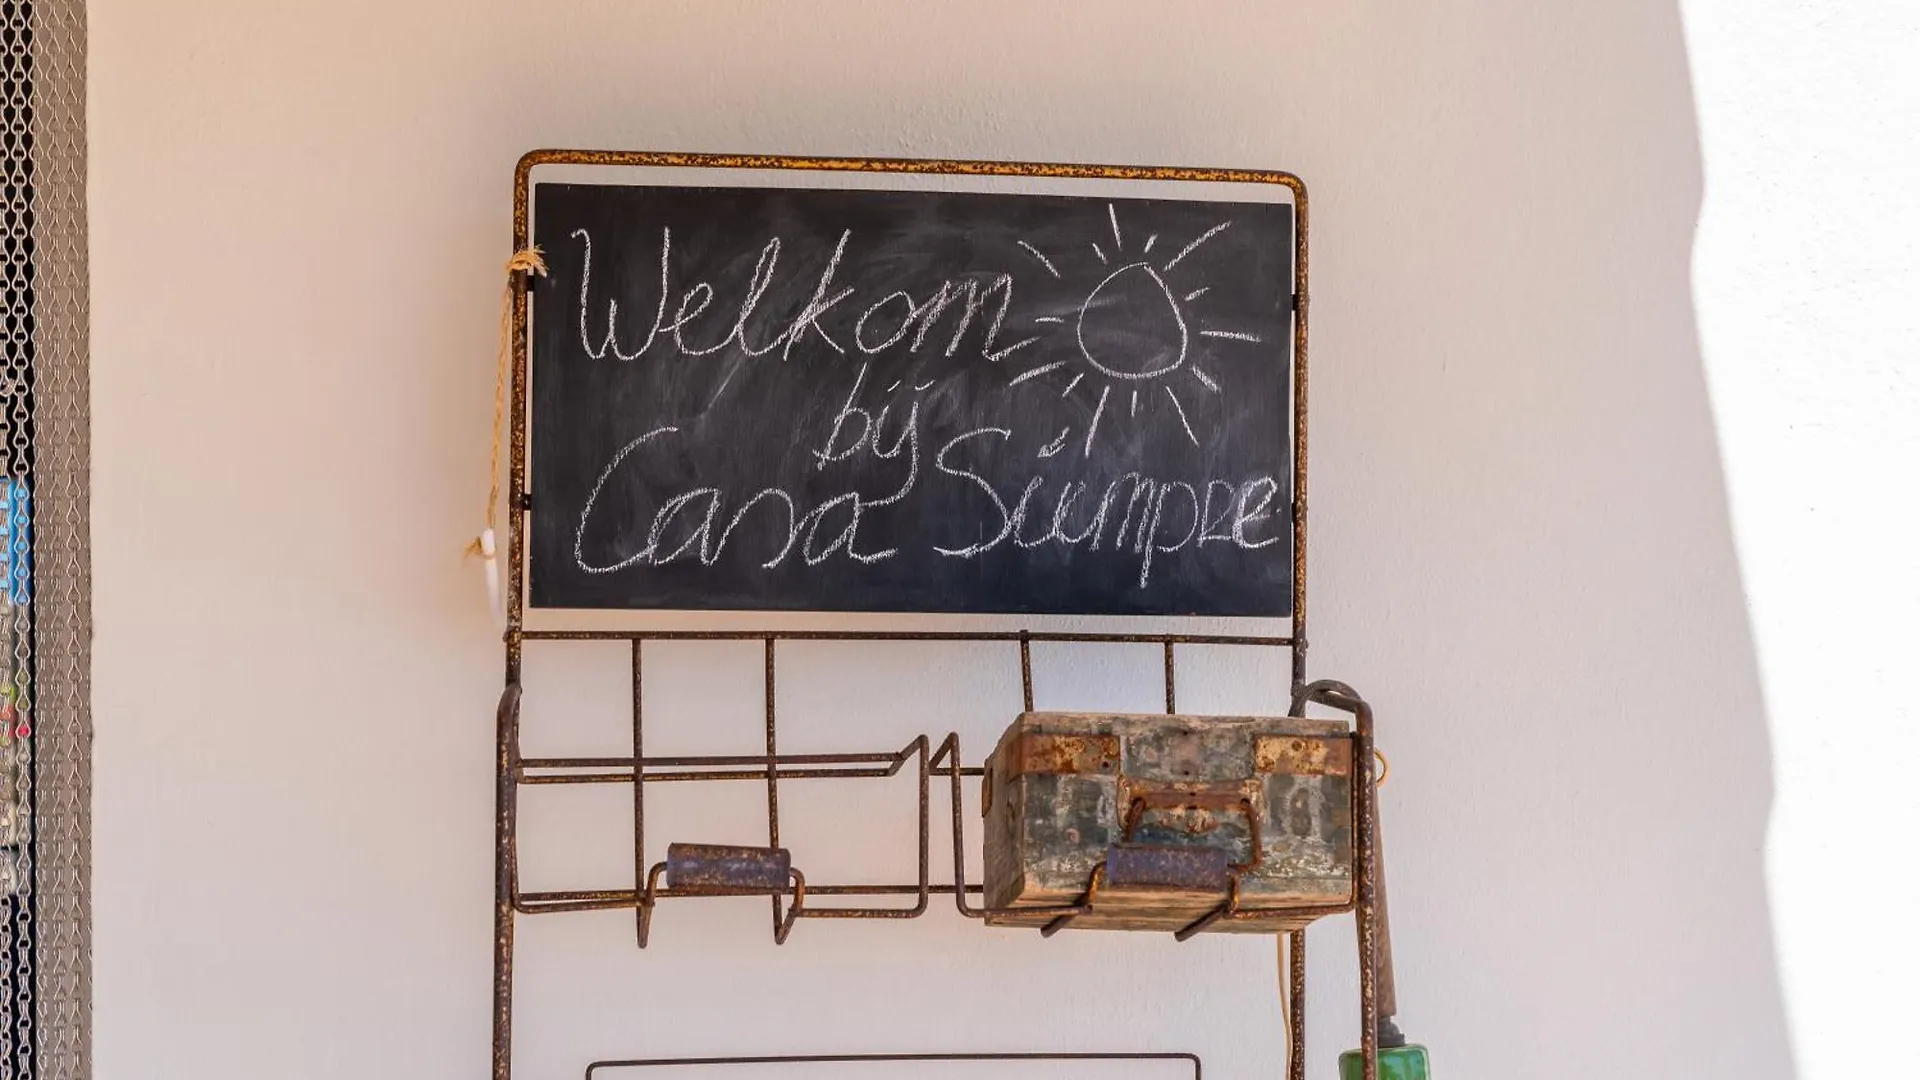 Welkom
bij
Casa Siempre